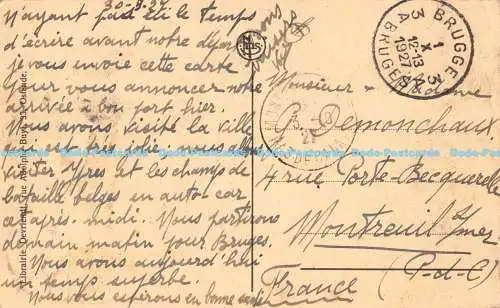 30-9-27
N'ayant pas eu le temps
d'écrire avant notre départ
je vous envoie cette carte
pour vous annoncer notre
arrivée à bon port hier.
Nous avons visité la ville
qui est très jolie. nous allons
visiter Ypres et les champs de
bataille belges en auto-car
cet après-midi. Nous partirons
demain matin pour Bruges.
Nous avons aujourd'hui
un temps superbe.
Nous vous espérons en bonne santé
Librairie Devriendt, rue Adolphe Buyl, 53, Ostende.
BRUGGE 3
1 X
12-13
1927
3 A BRUGES
Monsieur Madame
G. Demonchaux
4 rue Porte-Becquerelle
Montreuil s/mer
(P-d-C)
France
Dodo-Postcards